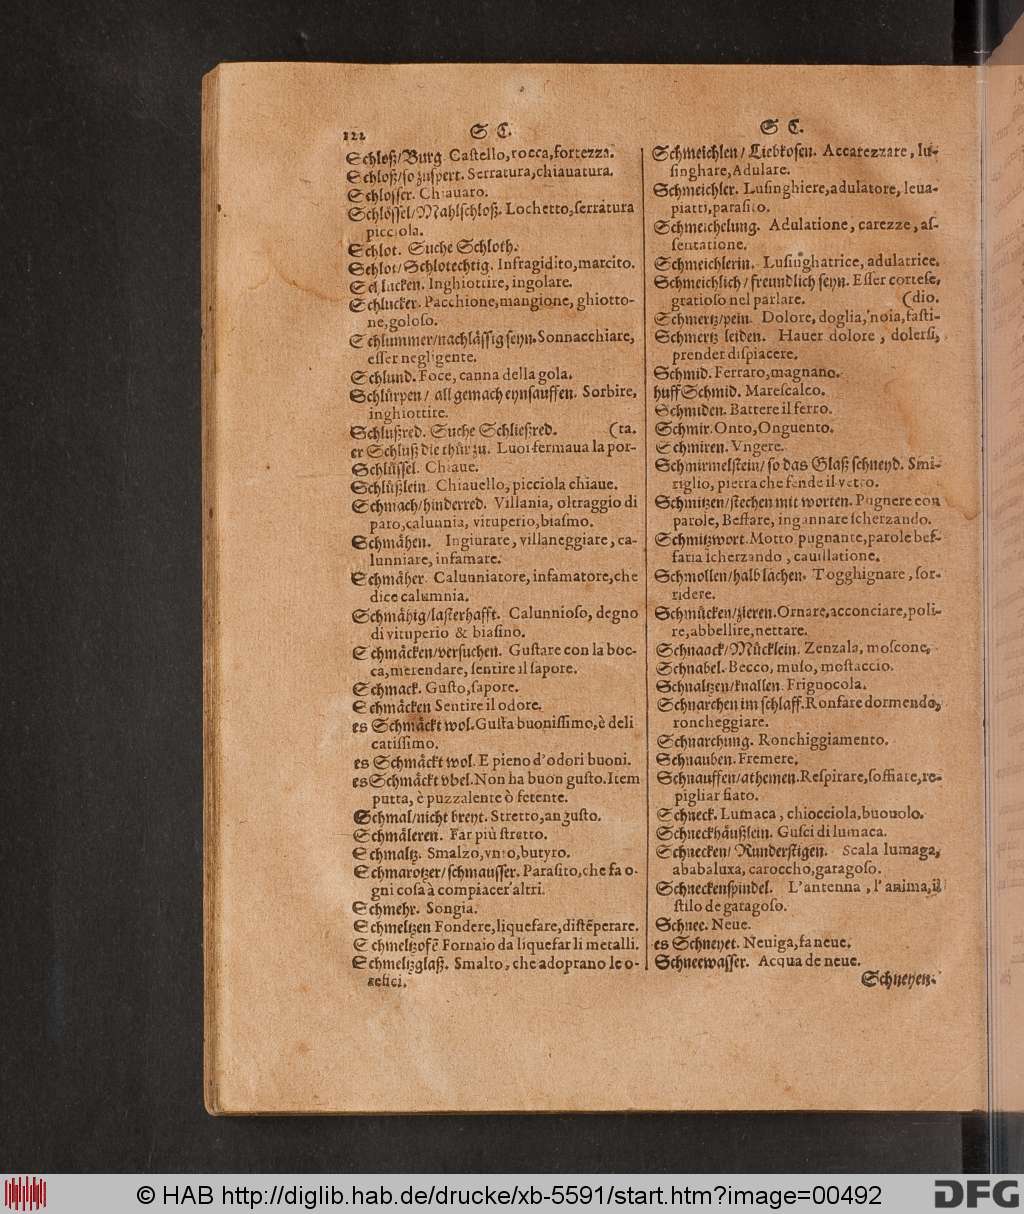 122
S C.
Schloß/Burg. Castello, rocca, fortezza.
Schloß/so zuspert. Serratura, chiauatura.
Schlosser. Chiauaro.
Schlössel/Mahlschloß. Lochetto, serratura
picciola.
Schlot. Suche Schloth.
Schlot/Schlotechtig. Infragidito, marcito.
Schlucken. Inghiottire, ingolare.
Schlucker. Pacchione, mangione, ghiotto-
ne, goloso.
Schlummer/nachlässig seyn. Sonnacchiare,
esser negligente.
Schlund. Foce, canna della gola.
Schlürpen/ allgemach eynsauffen. Sorbire,
inghiottire.
Schlußred. Suche Schließred. (ta.
er Schluß die thür zu. Luoi fermaua la por-
Schlüssel. Chiaue.
Schlüßlein. Chiauello, picciola chiaue.
Schmach/hinderred. Villania, oltraggio di
paro, calunnia, vituperio, biasmo.
Schmähen. Ingiurate, villaneggiare, ca-
lunniare, infamare.
Schmäher. Calunniatore, infamatore, che
dice calumnia.
Schmähig/lasterhafft. Calunnioso, degno
di vituperio & biasino.
Schmäcken/versuchen. Gustare con la boc-
ca, merendare, sentire il sapore.
Schmack. Gusto, sapore.
Schmäcken Sentire il odore.
es Schmäckt wol. Gusta buonissimo, è deli
catissimo.
es Schmäckt wol. E pieno d'odori buoni.
es Schmäckt vbel. Non ha buon gusto. Item
putta, è puzzalente ò fetente.
Schmal/nicht breyt. Stretto, angusto.
Schmäleren. Far più stretto.
Schmaltz. Smalzo, vnto, butyro.
Schmarotzer/schmausser. Parasito, che fa o-
gni cosa à compiacer altri.
Schmehr. Songia.
Schmeltzen Fondere, liquefare, distẽperare.
Schmeltzofẽ Fornaio da liquefar li metalli.
Schmeltzglaß. Smalto, che adoprano le o-
refici.
S C.
Schmeichlen/ Liebkosen. Accarezzare, lu-
singhare, Adulare.
Schmeichler. Lusinghiere, adulatore, leua-
piatti, parasito.
Schmeichelung. Adulatione, carezze, as-
sentatione.
Schmeichlerin. Lusinghatrice, adulatrice.
Schmeichlich/ freundlich seyn. Esser cortese,
gratioso nel parlare. (dio.
Schmertz/pein. Dolore, doglia, noia, fasti-
Schmertz leiden. Hauer dolore, dolersi,
prender dispiacere.
Schmid. Ferraro, magnano.
huff Schmid. Marescalco.
Schmiden. Battere il ferro.
Schmir. Onto, Onguento.
Schmiren. Vngere.
Schmirmelstein/ so das Glaß schneyd. Smi-
riglio, pietra che fende il vetro.
Schmitzen/stechen mit worten. Pugnere con
parole, Beffare, ingannare scherzando.
Schmitzwort. Motto pugnante, parole bef-
faria scherzando, cauillatione.
Schmollen/halb lachen. Togghignare, sor-
ridere.
Schmücken/zieren. Ornare, acconciare, poli-
re, abbellire, nettare.
Schnaack/Mücklein. Zenzala, moscone.
Schnabel. Becco, muso, mostaccio.
Schnaltzen/knallen. Frignocola.
Schnarchen im schlaff. Ronfare dormendo,
roncheggiare.
Schnarchung. Ronchiggiamento.
Schnauben. Fremere.
Schnauffen/athemen. Respirare, soffiate, re-
pigliar fiato.
Schneck. Lumaca, chiocciola, buouolo.
Schneckhäußlein. Gusci di lumaca.
Schnecken/ Runderstigen. Scala lumaga,
ababaluxa, caroccho, garagoso.
Schneckenspindel. L'antenna, l'anima, il
stilo de garagoso.
Schnee. Neue.
es Schneyet. Neuiga, fa neue.
Schneewasser. Acqua de neue.
Schneyen.
© HAB http://diglib.hab.de/drucke/xb-5591/start.htm?image=00492
DFG